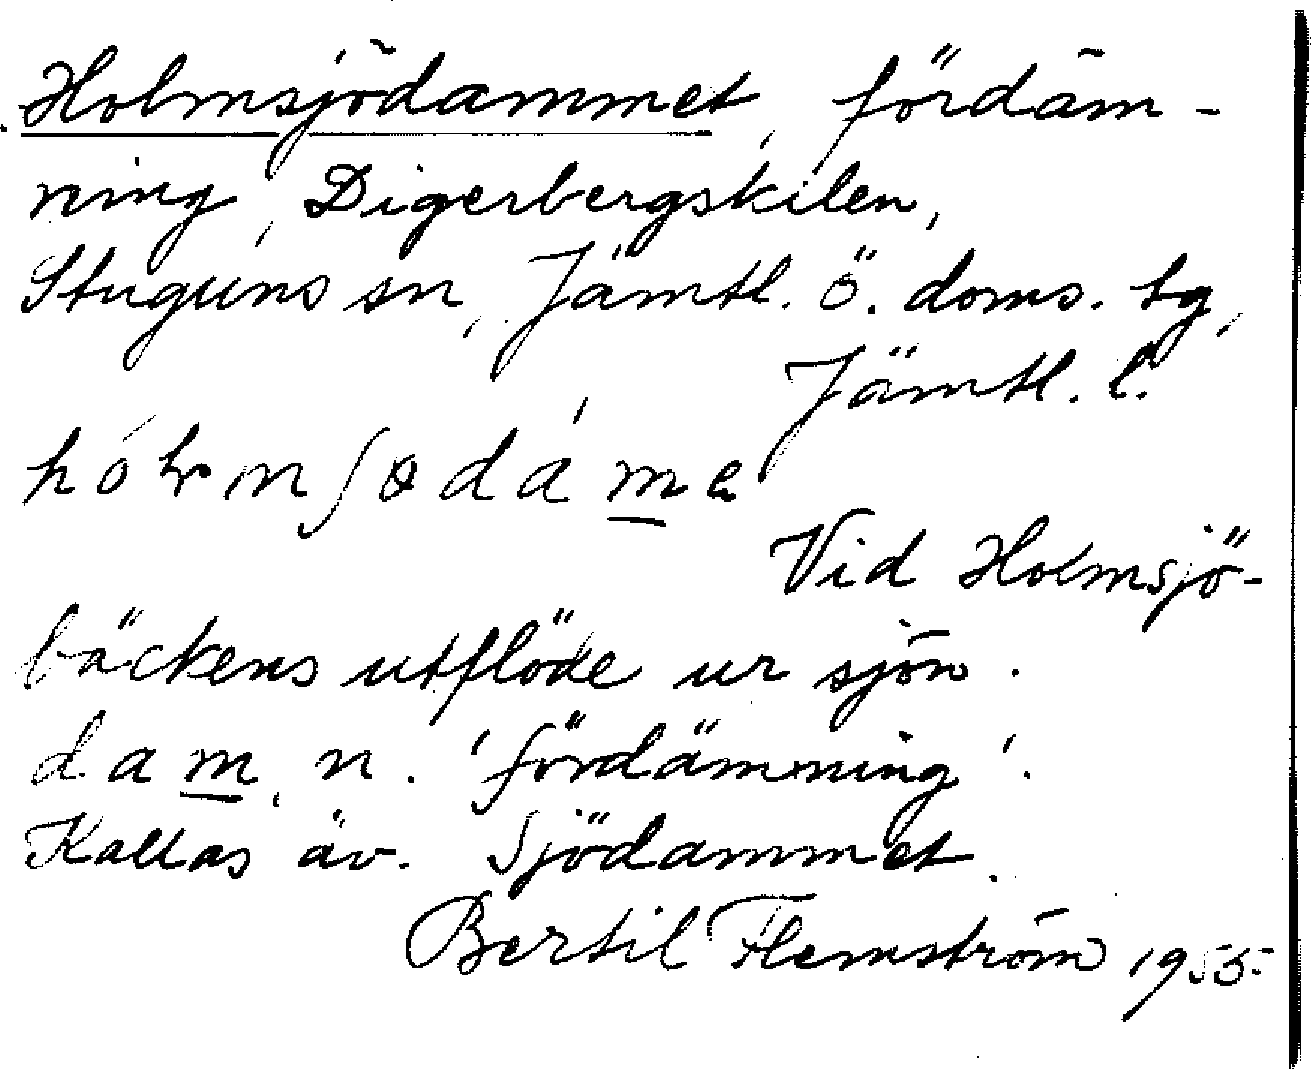 Holmsjödammet, fördäm-
ning, Digerbergskilen,
Stuguns sn, Jämtl. ö. doms. tg,
Jämtl. l.
Vid Holmsjö-
bäckens utflöde ur sjön.
dam, n. 'fördämning'.
Kallas äv. Sjödammet.
Bertil Flemström 1955